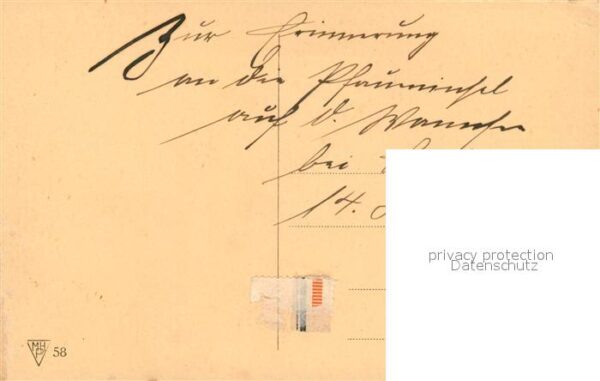 Zur Erinnerung
an die Pfaueninsel
auf d. Wannsee
bei
14.
privacy protection
Datenschutz
MHP 58